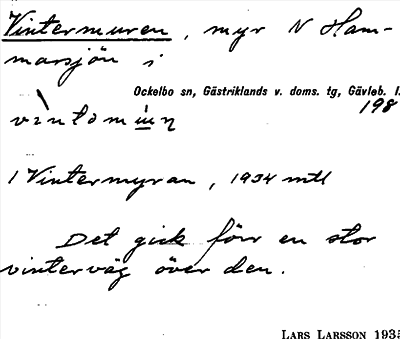 Vintermuren, myr N Ham-
marsjön i
Ockelbo sn, Gästriklands v. doms. tg, Gävleb. l.
198
1 Vintermyran, 1934 mtl
Det gick förr en stor
vinterväg över den.
LARS LARSSON 1935